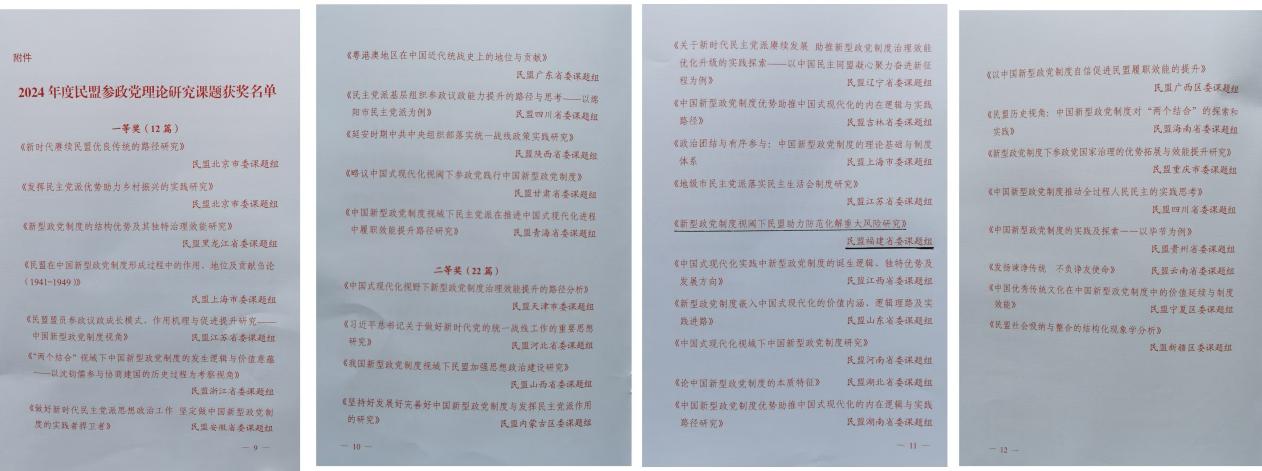 附件
2024 年度民盟参政党理论研究课题获奖名单
一等奖（12 篇）
《新时代赓续民盟优良传统的路径研究》
民盟北京市委课题组
《发挥民主党派优势助力乡村振兴的实践研究》
民盟北京市委课题组
《新型政党制度的结构优势及其独特治理效能研究》
民盟黑龙江省委课题组
《民盟在中国新型政党制度形成过程中的作用、地位及贡献刍论
（1941-1949）》
民盟上海市委课题组
《民盟盟员参政议政成长模式、作用机理与促进提升研究——
中国新型政党制度视角》 民盟江苏省委课题组
《“两个结合”视域下中国新型政党制度的发生逻辑与价值意蕴
——以沈钧儒参与协商建国的历史过程为考察视角》
民盟浙江省委课题组
《做好新时代民主党派思想政治工作 坚定做中国新型政党制
度的实践者捍卫者》 民盟安徽省委课题组
— 9 —
《粤港澳地区在中国近代统战史上的地位与贡献》
民盟广东省委课题组
《民主党派基层组织参政议政能力提升的路径与思考——以绵
阳市民主党派为例》 民盟四川省委课题组
《延安时期中共中央组织部落实统一战线政策实践研究》
民盟陕西省委课题组
《略议中国式现代化视阈下参政党践行中国新型政党制度》
民盟甘肃省委课题组
《中国新型政党制度视域下民主党派在推进中国式现代化进程
中履职效能提升路径研究》 民盟青海省委课题组
二等奖（22 篇）
《中国式现代化视野下新型政党制度治理效能提升的路径分析》
民盟天津市委课题组
《习近平总书记关于做好新时代党的统一战线工作的重要思想
研究》 民盟河北省委课题组
《我国新型政党制度视域下民盟加强思想政治建设研究》
民盟山西省委课题组
《坚持好发展好完善好中国新型政党制度与发挥民主党派作用
的研究》 民盟内蒙古区委课题组
— 10 —
《关于新时代民主党派赓续发展 助推新型政党制度治理效能
优化升级的实践探索——以中国民主同盟凝心聚力奋进新征
程为例》 民盟辽宁省委课题组
《中国新型政党制度优势助推中国式现代化的内在逻辑与实践
路径》 民盟吉林省委课题组
《政治团结与有序参与：中国新型政党制度的理论基础与制度
体系 民盟上海市委课题组
《地级市民主党派落实民主生活会制度研究》
民盟江苏省委课题组
《新型政党制度视阈下民盟助力防范化解重大风险研究》
民盟福建省委课题组
《中国式现代化实践中新型政党制度的诞生逻辑、独特优势及
发展方向》 民盟江西省委课题组
《新型政党制度嵌入中国式现代化的价值内涵、逻辑理路及实
践进路》 民盟山东省委课题组
《中国式现代化视域下中国新型政党制度研究》
民盟河南省委课题组
《论中国新型政党制度的本质特征》 民盟湖北省委课题组
《中国新型政党制度优势助推中国式现代化的内在逻辑与实践
路径研究》 民盟湖南省委课题组
— 11
《以中国新型政党制度自信促进民盟履职效能的提升》
民盟广西区委课题组
《民盟历史视角：中国新型政党制度对“两个结合”的探索和
实践》 民盟海南省委课题组
《新型政党制度下参政党国家治理的优势拓展与效能提升研究》
民盟重庆市委课题组
《中国新型政党制度推动全过程人民民主的实践思考》
民盟四川省委课题组
《中国新型政党制度的实践及探索——以毕节为例》
民盟贵州省委课题组
《发扬谏诤传统 不负诤友使命》 民盟云南省委课题组
《中国优秀传统文化在中国新型政党制度中的价值延续与制度
效能》 民盟宁夏区委课题组
《民盟社会吸纳与整合的结构化现象学分析》
民盟新疆区委课题组
— 12 —